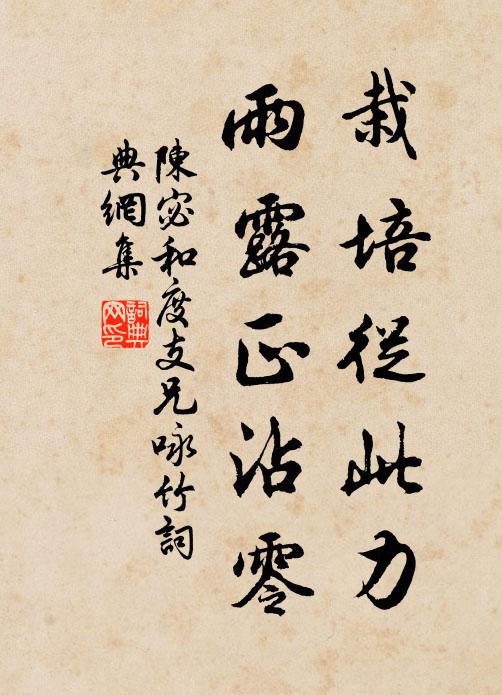 栽培從此力
雨露正沾零
陳宓和度支兄咏竹詞
典網集
詞典網印